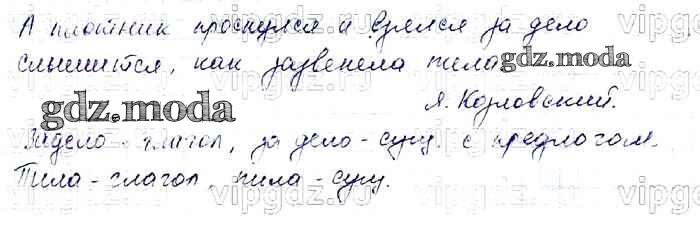 А плотник проснулся и взялся за дело
слышится, как зазвенела пила
gdz.moda
Я. Козловский.
gdz.moda
Задело - глагол, за дело - сущ. с предлогом.
Пила - глагол, пила - сущ.